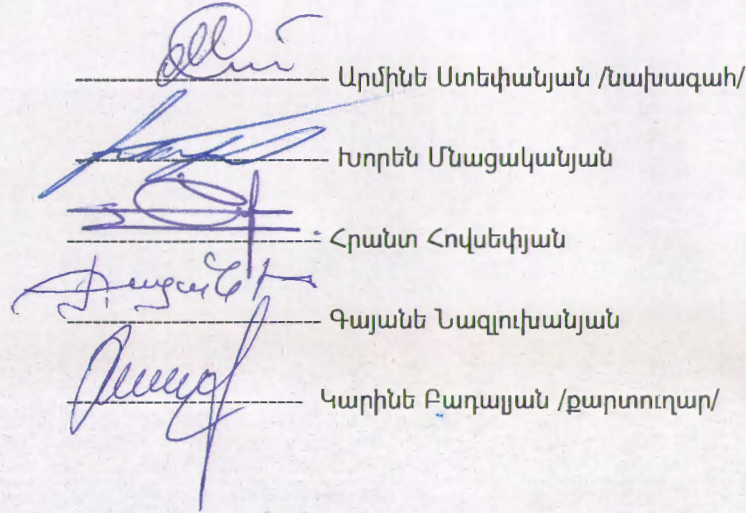 Արմինե Ստեփանյան /նախագահ/
Խորեն Մնացականյան
Հրանտ Հովսեփյան
Գայանե Նազլուխանյան
Կարինե Բադալյան /քարտուղար/